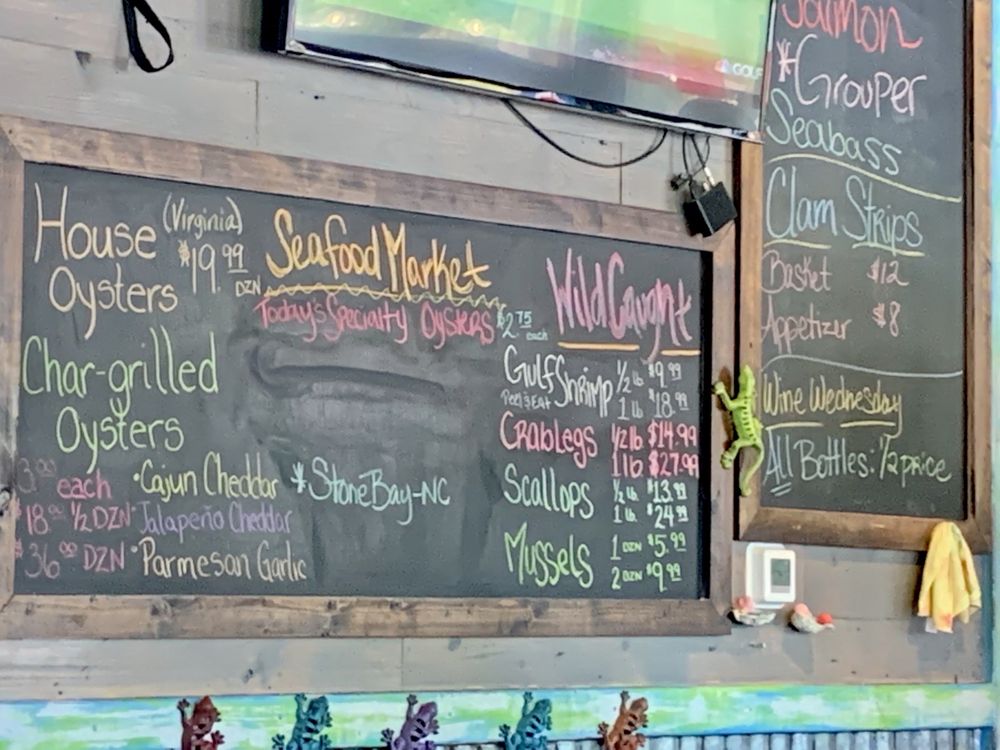 GOLF
House (Virginia)
Oysters $19.99 DZN
Char-grilled
Oysters
3.00 each • Cajun Cheddar
$18.00 1/2 DZN • Jalapeño Cheddar
$36.00 DZN • Parmesan Garlic
Seafood Market
Today's Specialty Oysters $2.75 each
*Stone Bay-NC
Wild Caught
Gulf Shrimp 1/2 lb $9.99
Peel & Eat 1 lb $18.99
Crab Legs 1/2 lb $14.99
1 lb $27.99
Scallops 1/2 lb. $13.99
1 lb. $24.99
Mussels 1 DZN $5.99
2 DZN $9.99
Salmon
*Grouper
Seabass
Clam Strips
Basket $12
Appetizer $8
Wine Wednesday
All Bottles: 1/2 price